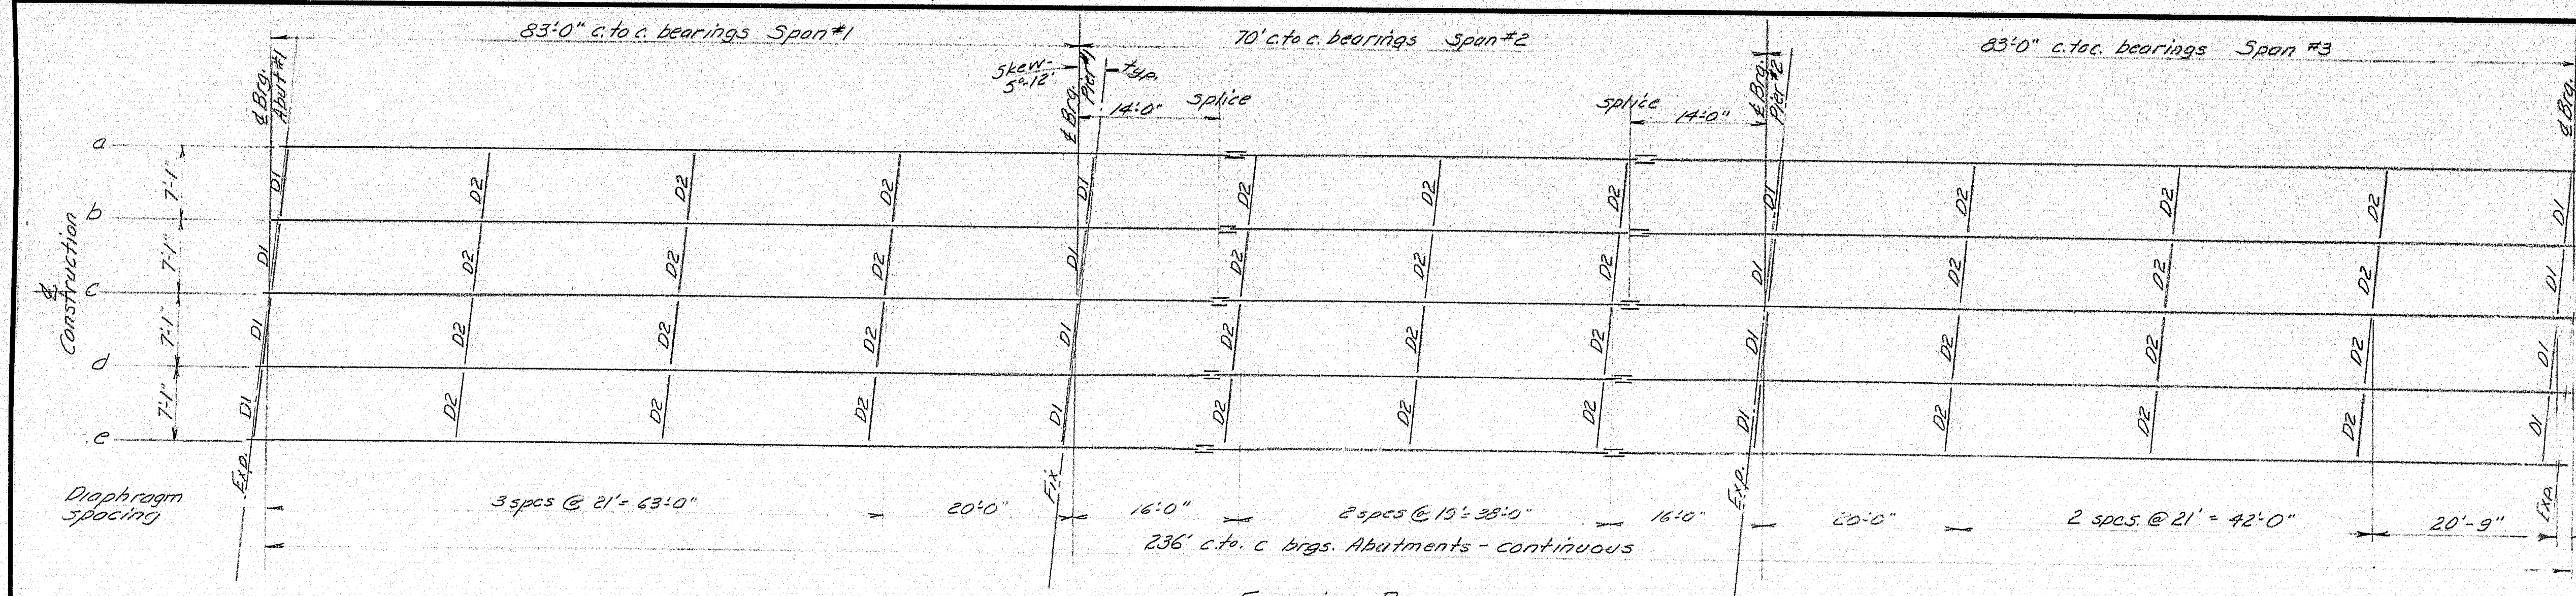 83'-0" c. to c. bearings Span #1
70' c. to c. bearings Span #2
83'-0" c. to c. bearings Span #3
℄ Brg.
Abut #1
Skew-
5°-12'
℄ Brg.
Pier #1
typ.
14'-0"
splice
splice
14'-0"
℄ Brg.
Pier #2
℄ Brg.
a
b
c
d
e
7'-1"
7'-1"
7'-1"
7'-1"
℄
Construction
D1 D2 D2 D2 D1 D2 D2 D2 D1 D2 D2 D2 D1
D1 D2 D2 D2 D1 D2 D2 D2 D1 D2 D2 D2 D1
D1 D2 D2 D2 D1 D2 D2 D2 D1 D2 D2 D2 D1
D1 D2 D2 D2 D1 D2 D2 D2 D1 D2 D2 D2 D1
Exp.
Fix
Exp.
Exp.
Diaphragm
spacing
3 spcs @ 21' = 63'-0"
20'-0"
16'-0"
2 spcs @ 19' = 38'-0"
16'-0"
20'-0"
2 spcs. @ 21' = 42'-0"
20'-9"
236' c. to. c brgs. Abutments - continuous